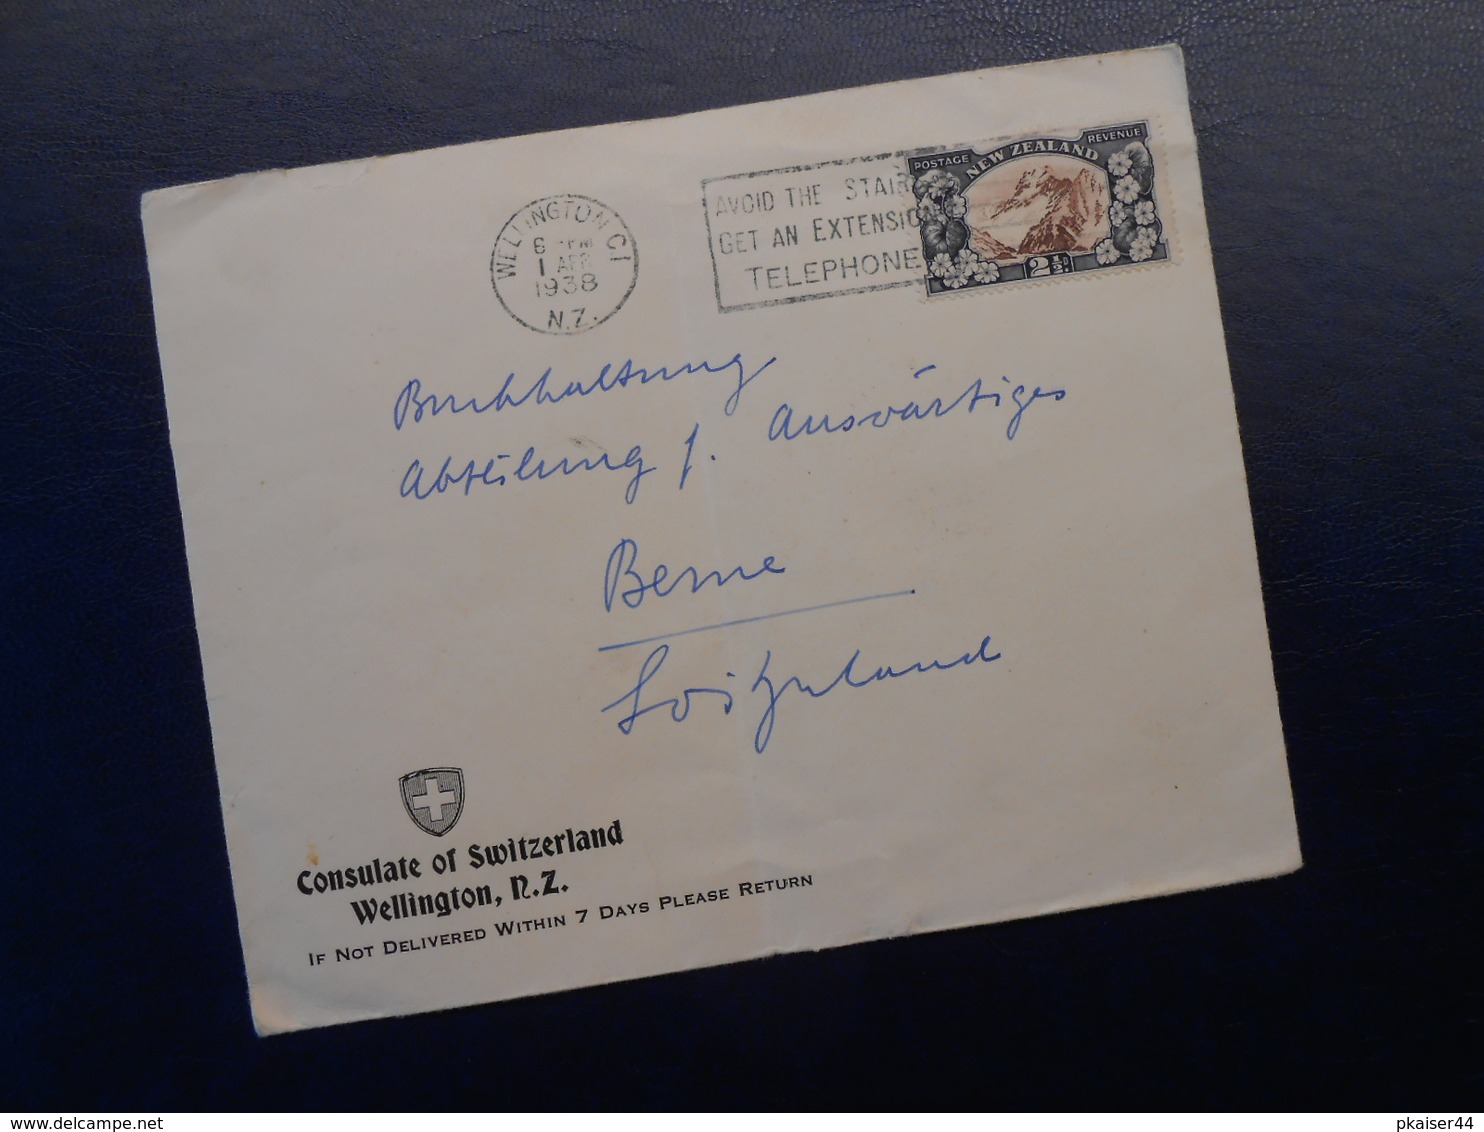 WELLINGTON C.1
6 PM
1 APR
1938
N.Z.
AVOID THE STAIR
GET AN EXTENSIO
TELEPHONE
POSTAGE NEW ZEALAND REVENUE
2½D.
Buchhaltung
Abteilung f. Auswärtiges
Berne
Switzerland
Consulate of Switzerland
Wellington, N.Z.
IF NOT DELIVERED WITHIN 7 DAYS PLEASE RETURN
delcampe.net
pkaiser44